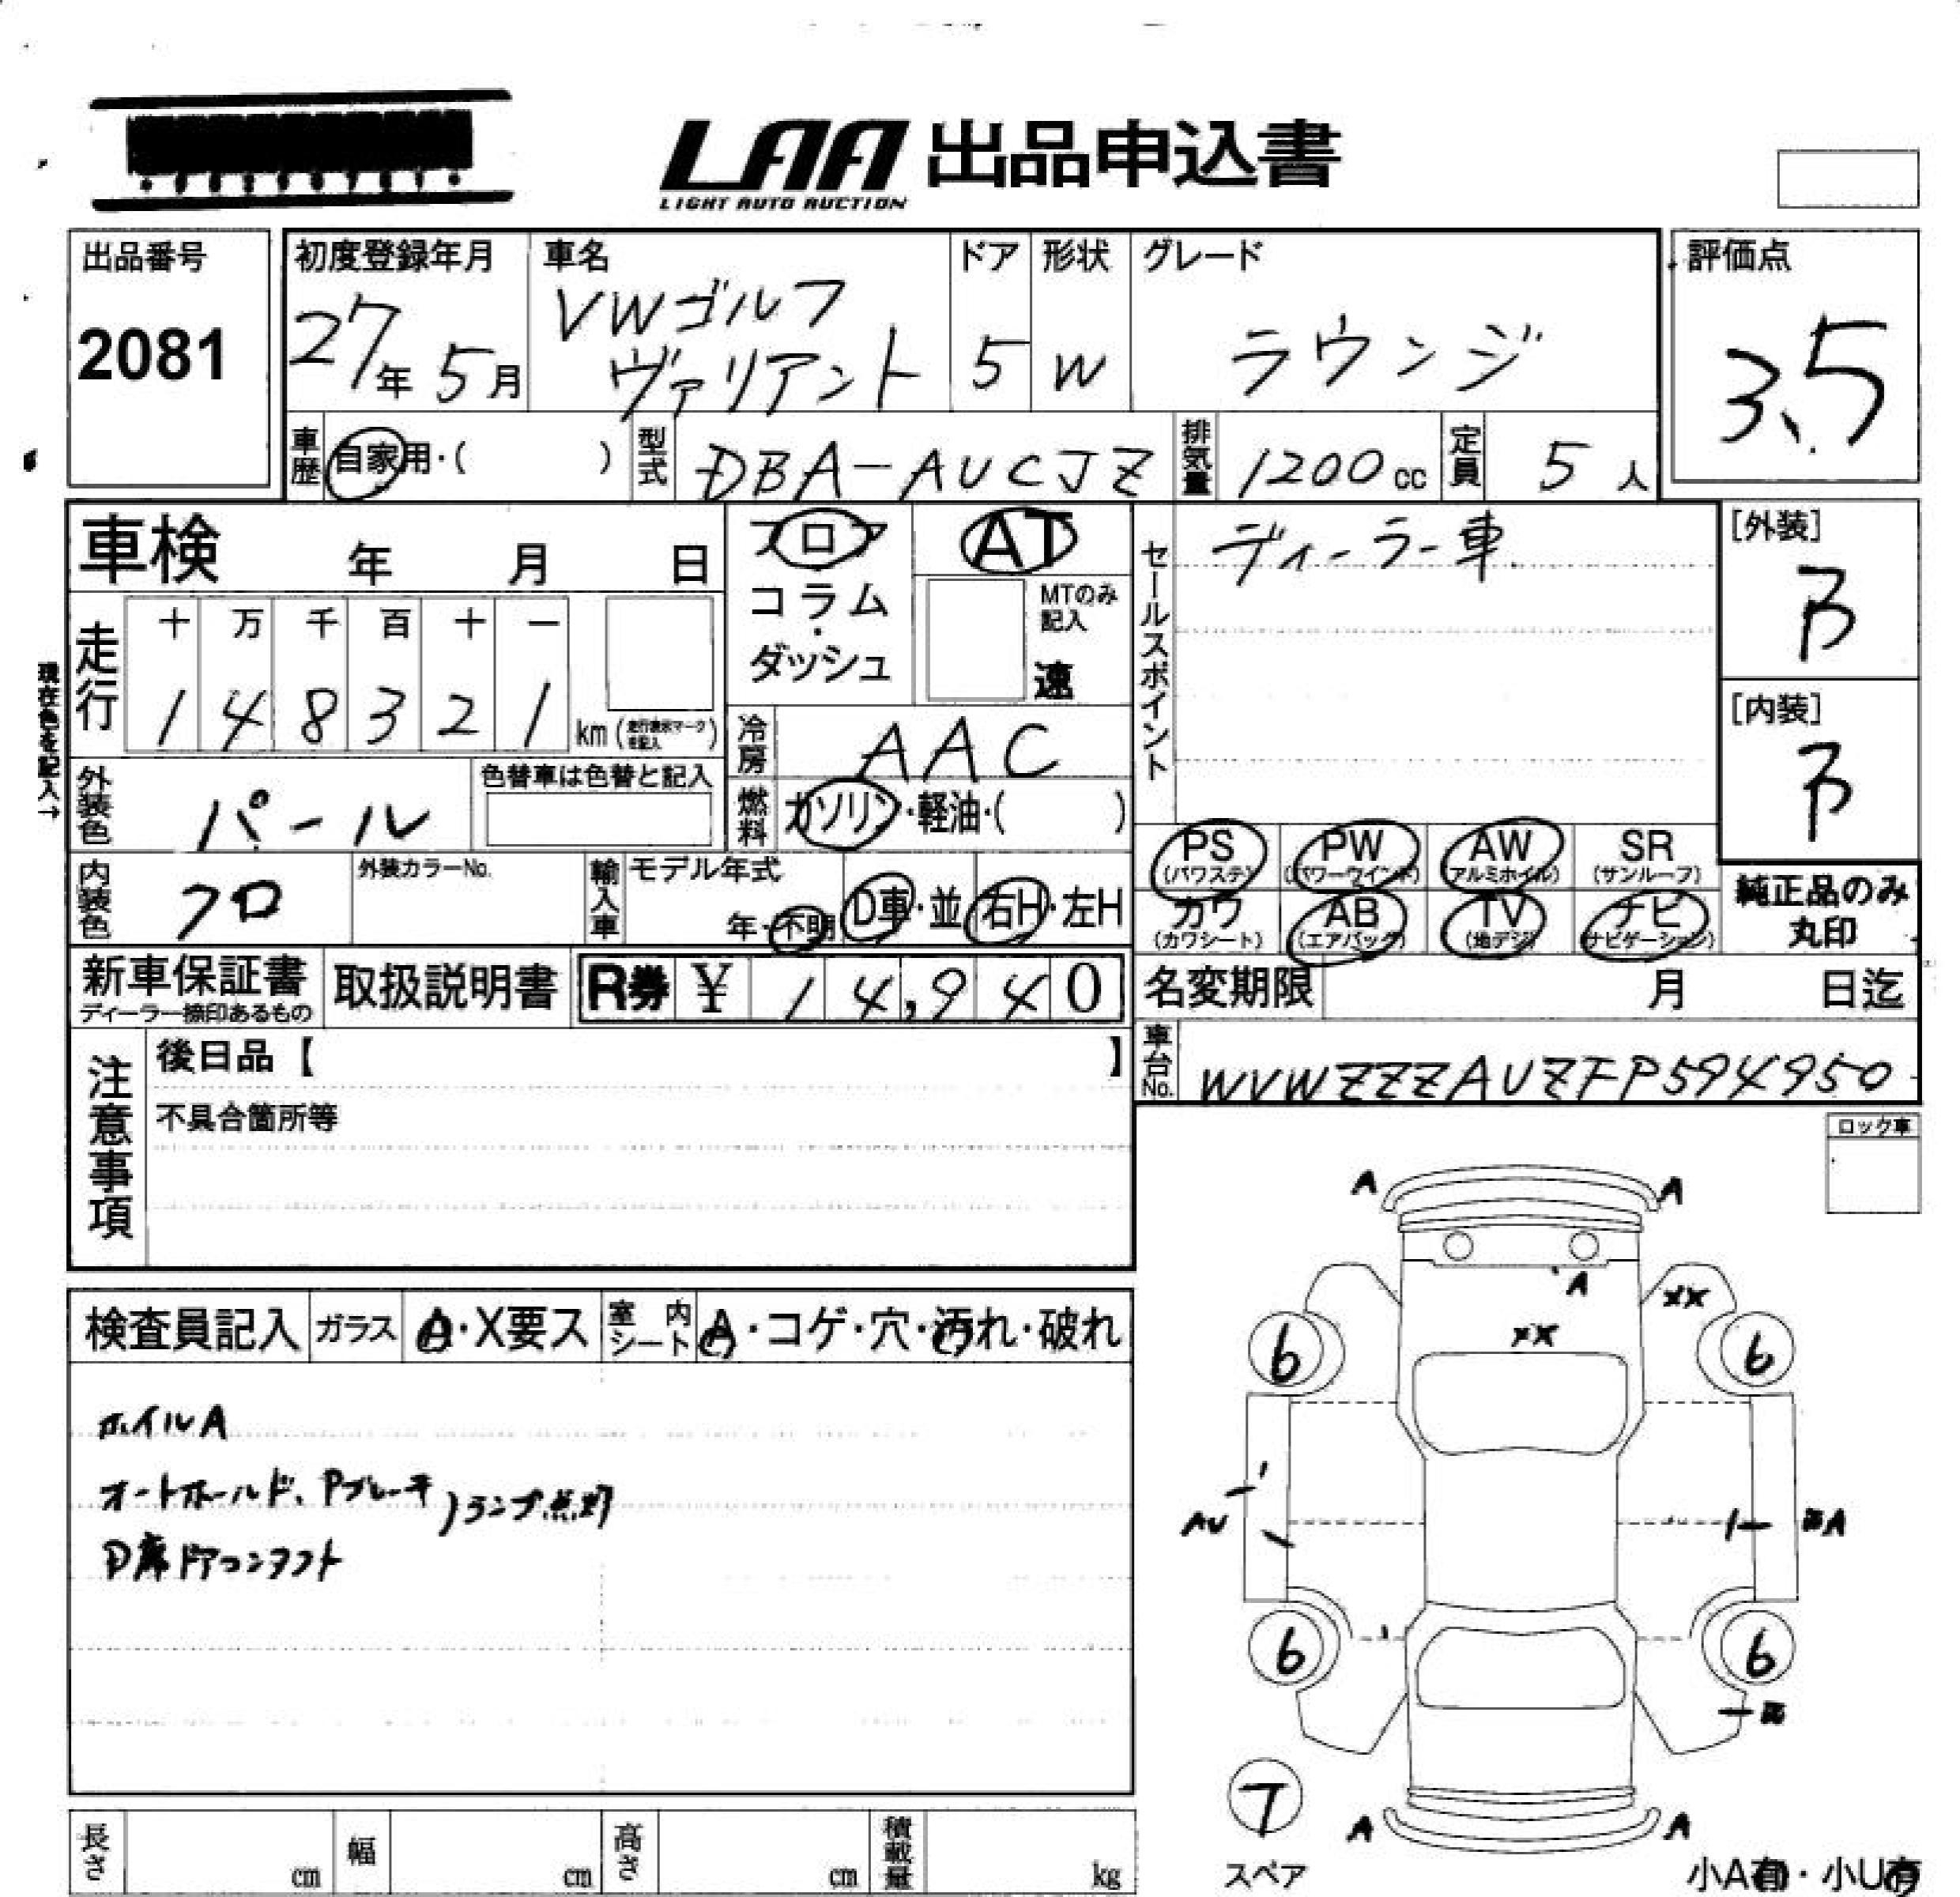 LAA 出品申込書
LIGHT AUTO AUCTION
出品番号
2081
初度登録年月
27年 5月
車名
VWゴルフ
ヴァリアント
ドア
5
形状
W
グレード
ラウンジ
評価点
3.5
車歴 自家用・( )
型式 DBA-AUCJZ
排気量 1200cc
定員 5人
車検 年 月 日
フロア
コラム
・
ダッシュ
AT
MTのみ
記入
速
セールスポイント
ディーラー車
[外装]
B
[内装]
B
現在色を記入→
走行
十 万 千 百 十 一
1 4 8 3 2 1 km (走行表示マークを記入)
冷房 AAC
外装色 パール
色替車は色替と記入
燃料 ガソリン・軽油・( )
内装色 クロ
外装カラーNo.
輸入車
モデル年式
年・不明
D車・並
右H・左H
PS
(パワステ)
PW
(パワーウインド)
AW
(アルミホイル)
SR
(サンルーフ)
カワ
(カワシート)
AB
(エアバック)
TV
(地デジ)
ナビ
(ナビゲーション)
純正品のみ
丸印
新車保証書
ディーラー捺印あるもの
取扱説明書
R券 ¥ 14,940
名変期限 月 日迄
車台No. WVWZZZAUZFP594950
注意事項
後日品【 】
不具合箇所等
ロック車
検査員記入
ガラス A・X要ス
室内シート A・コゲ・穴・汚れ・破れ
ホイルA
オートホールド、Pブレーキ)ランプ点灯
D席ドアコンタクト
A A
A
XX
XX
6 6
AU
A
6 6
T
スペア
A A
小A有・小U有
長さ cm
幅 cm
高さ cm
積載量 kg